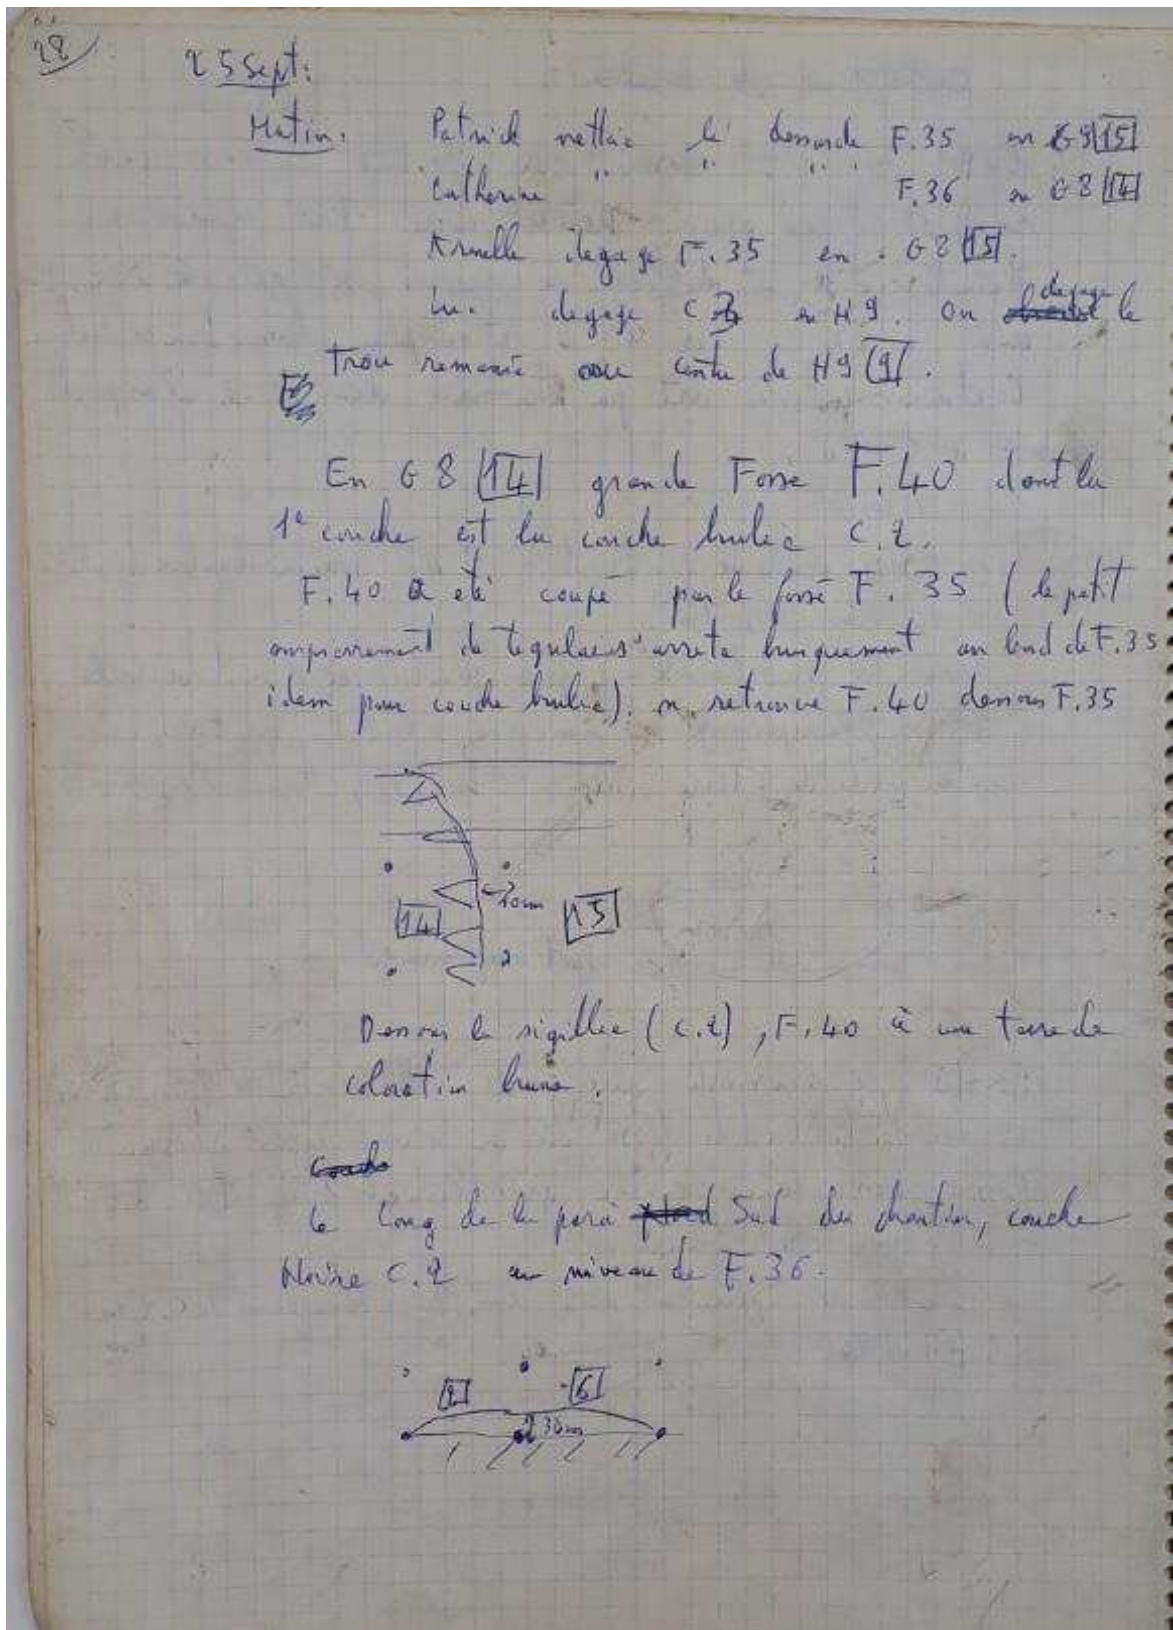 28
25 Sept:
Matin. Patrick nettoie le F.35 en G9 [15]
Catherine " " " F.36 en G8 [14]
Armelle dégage F.35 en G8 [15].
dégage C3 en H9. On dégage le
trou remanié au centre de H9 [9].
En G8 [14] grande Fosse F.40 dont la
1e couche est la couche brulée C.2.
F.40 a été coupé par le fossé F.35 (le petit
empierrement de tegulae s'arrete brusquement au bord de F.35
idem pour couche brulée). on retrouve F.40 dessous F.35
20cm
[14] [15]
Dessous la sigillée (C.2), F.40 à une terre de
coloration brune.
Couche
le long de la paroi Nord Sud du chantier, couche
Noire C.2 au niveau de F.36.
[2] [6]
30cm